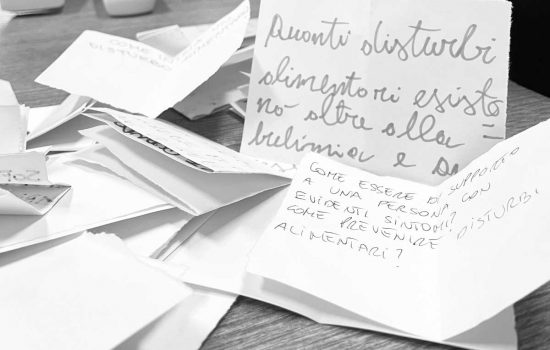 COME IN
DISTURBO ALIMENTARE
Quanti disturbi
alimentari esisto
no oltre alla
bulimia e
COME ESSERE DI SUPPORTO
A UNA PERSONA CON
EVIDENTI SINTOMI?
COME PREVENIRE DISTURBI
ALIMENTARI?